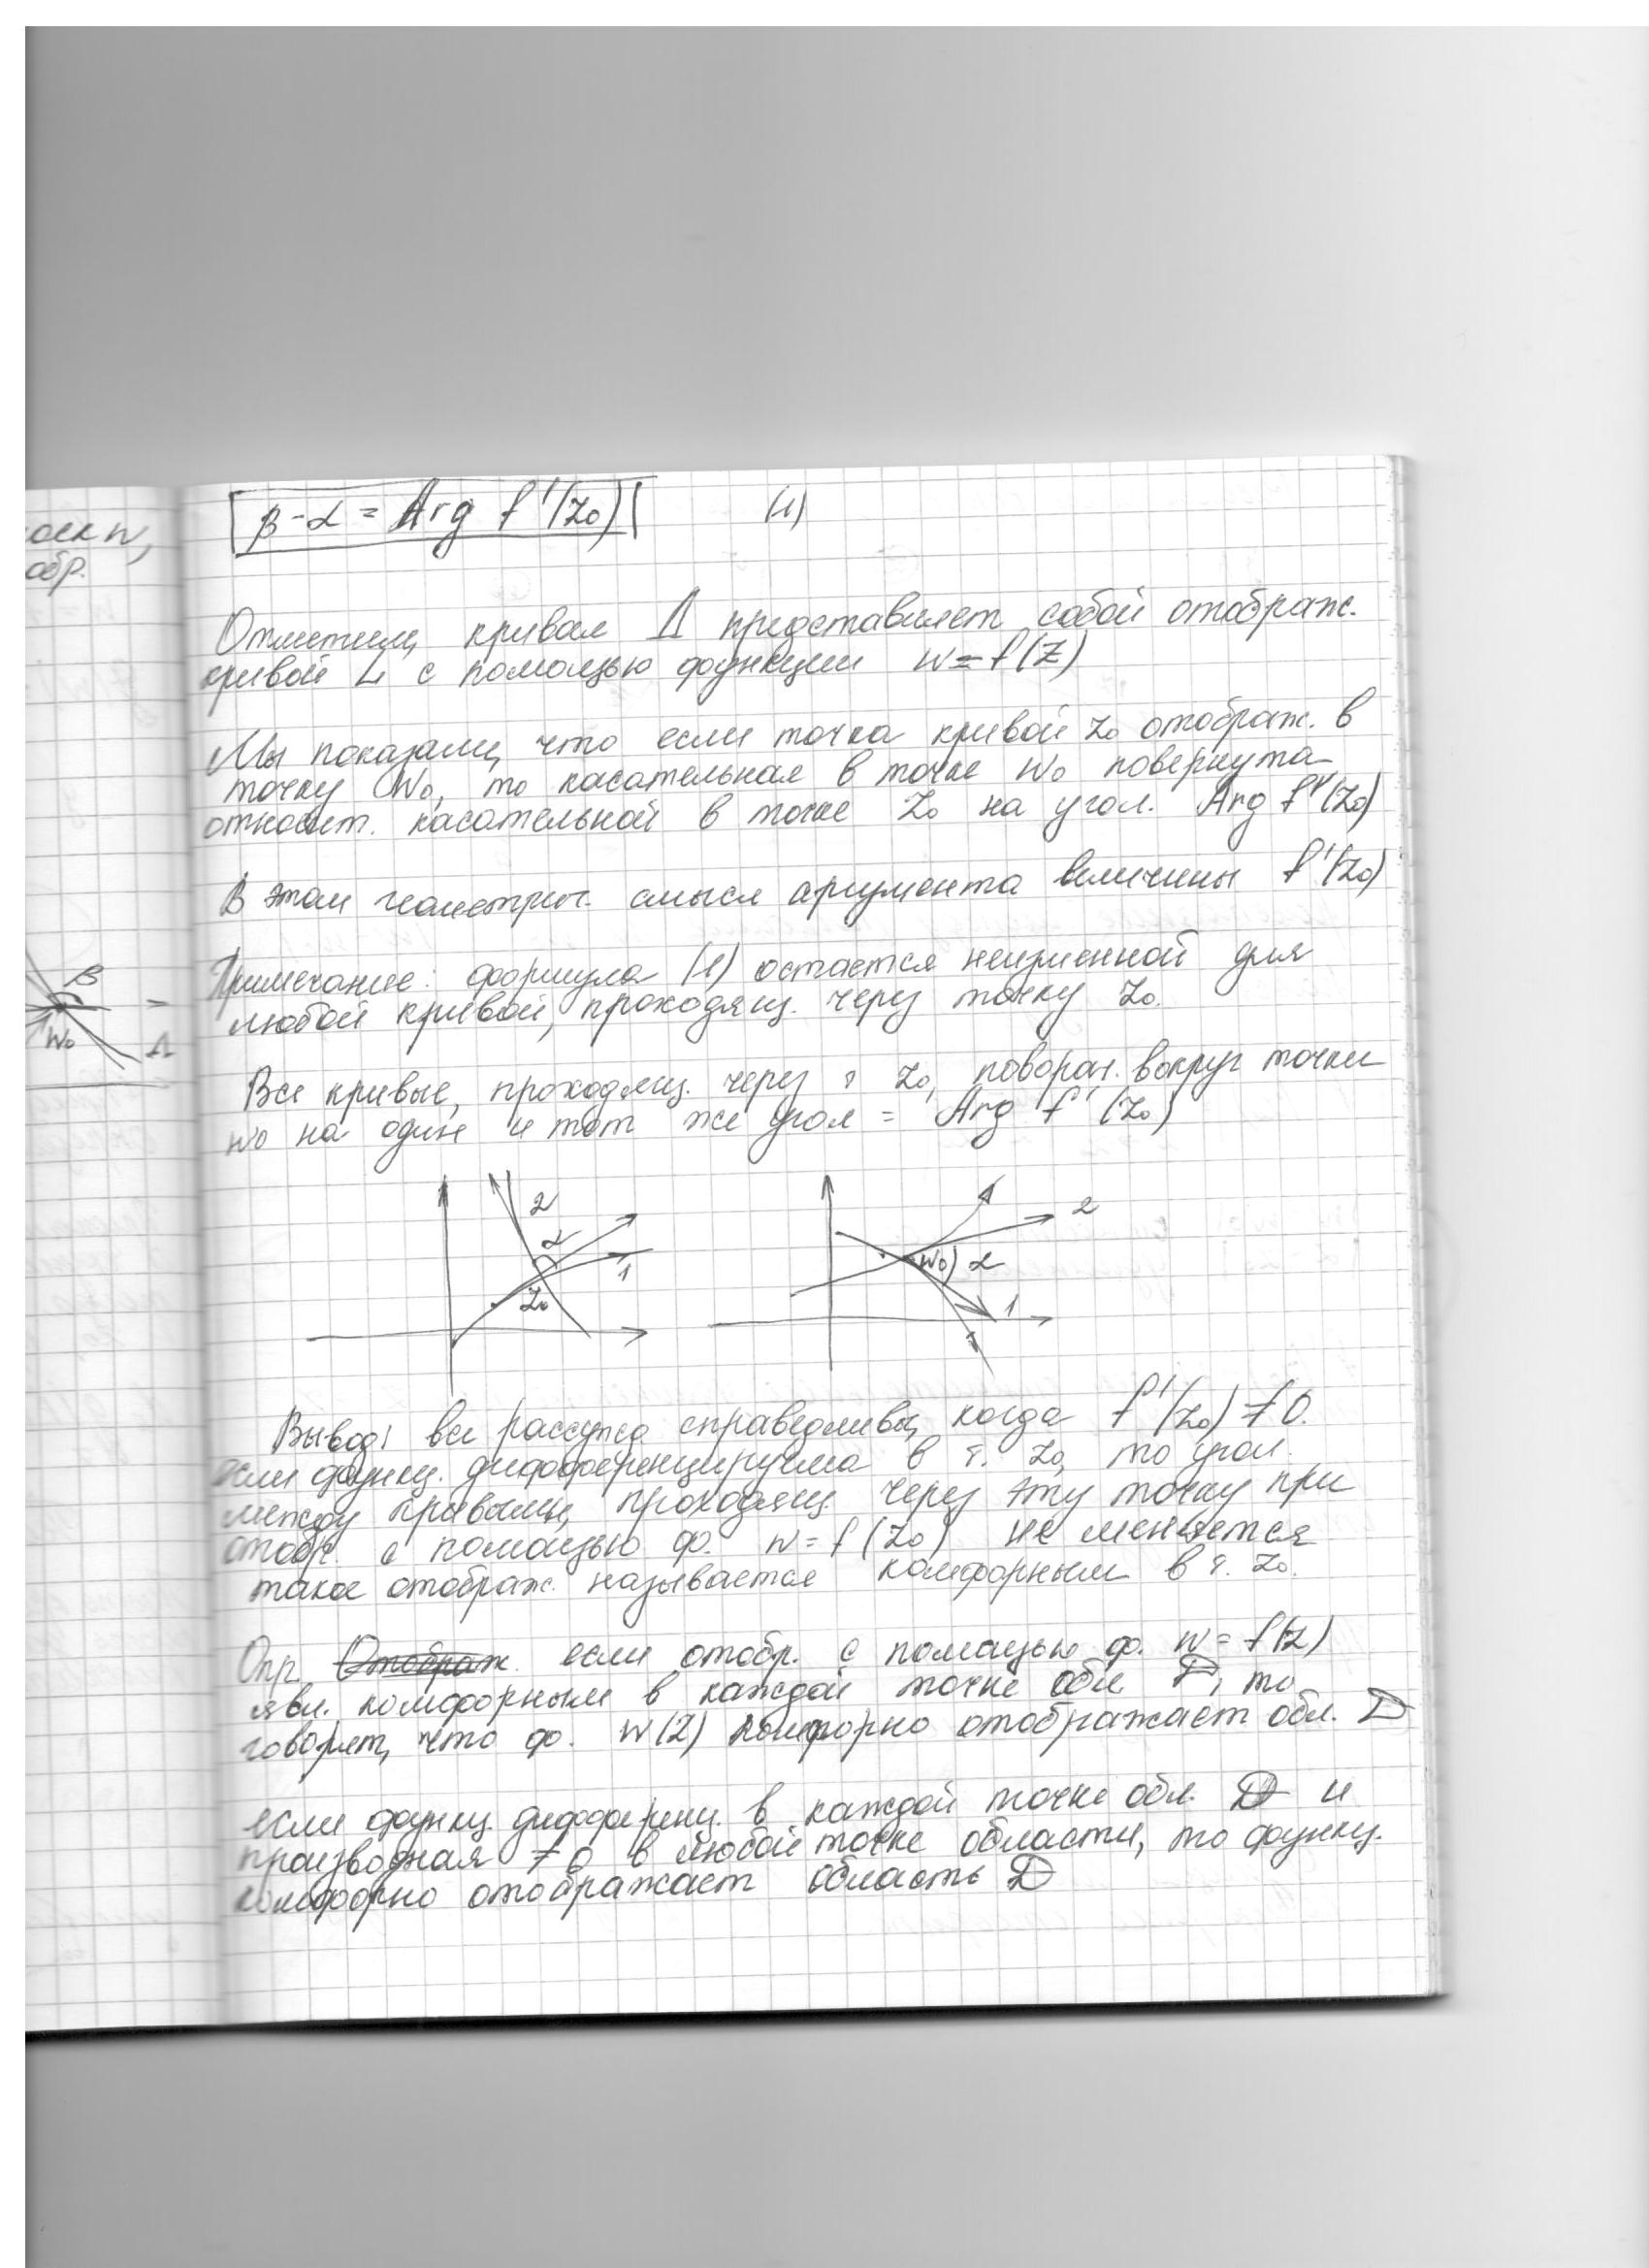 оск w,
обр.
β
w₀
Λ
β-α = Arg f'(z₀) (1)
Отметим, кривая Λ представляет собой отображ.
кривой L с помощью функции w=f(z)
Мы показали, что если точка кривой z₀ отображ. в
точку w₀, то касательная в точке w₀ повернута
относит. касательной в точке z₀ на угол. Arg f'(z₀)
В этом геометрич. смысл аргумента величины f'(z₀)
Примечание: формула (1) остается неизменной для
любой кривой, проходящ. через точку z₀.
Все кривые, проходящ. через т z₀, поворач. вокруг точки
w₀ на один и тот же угол = Arg f'(z₀)
2
α
1
z₀
2
w₀ α
1
Вывод: все рассужд справедливы, когда f'(z₀) ≠ 0.
если функц. дифференцируема в т. z₀, то угол.
между кривыми, проходящ. через эту точку при
отобр. с помощью ф. w=f(z₀) не меняется
такое отображ. называется комформным в т. z₀.
Опр. Отображ. если отобр. с помощью ф. w=f(z)
явл. комформным в каждой точке обл D, то
говорят, что ф. w(z) комформно отображает обл. D
если функц. дифферени. в каждой точке обл. D и
производная ≠ 0 в любой точке области, то функц.
комформно отображает область D